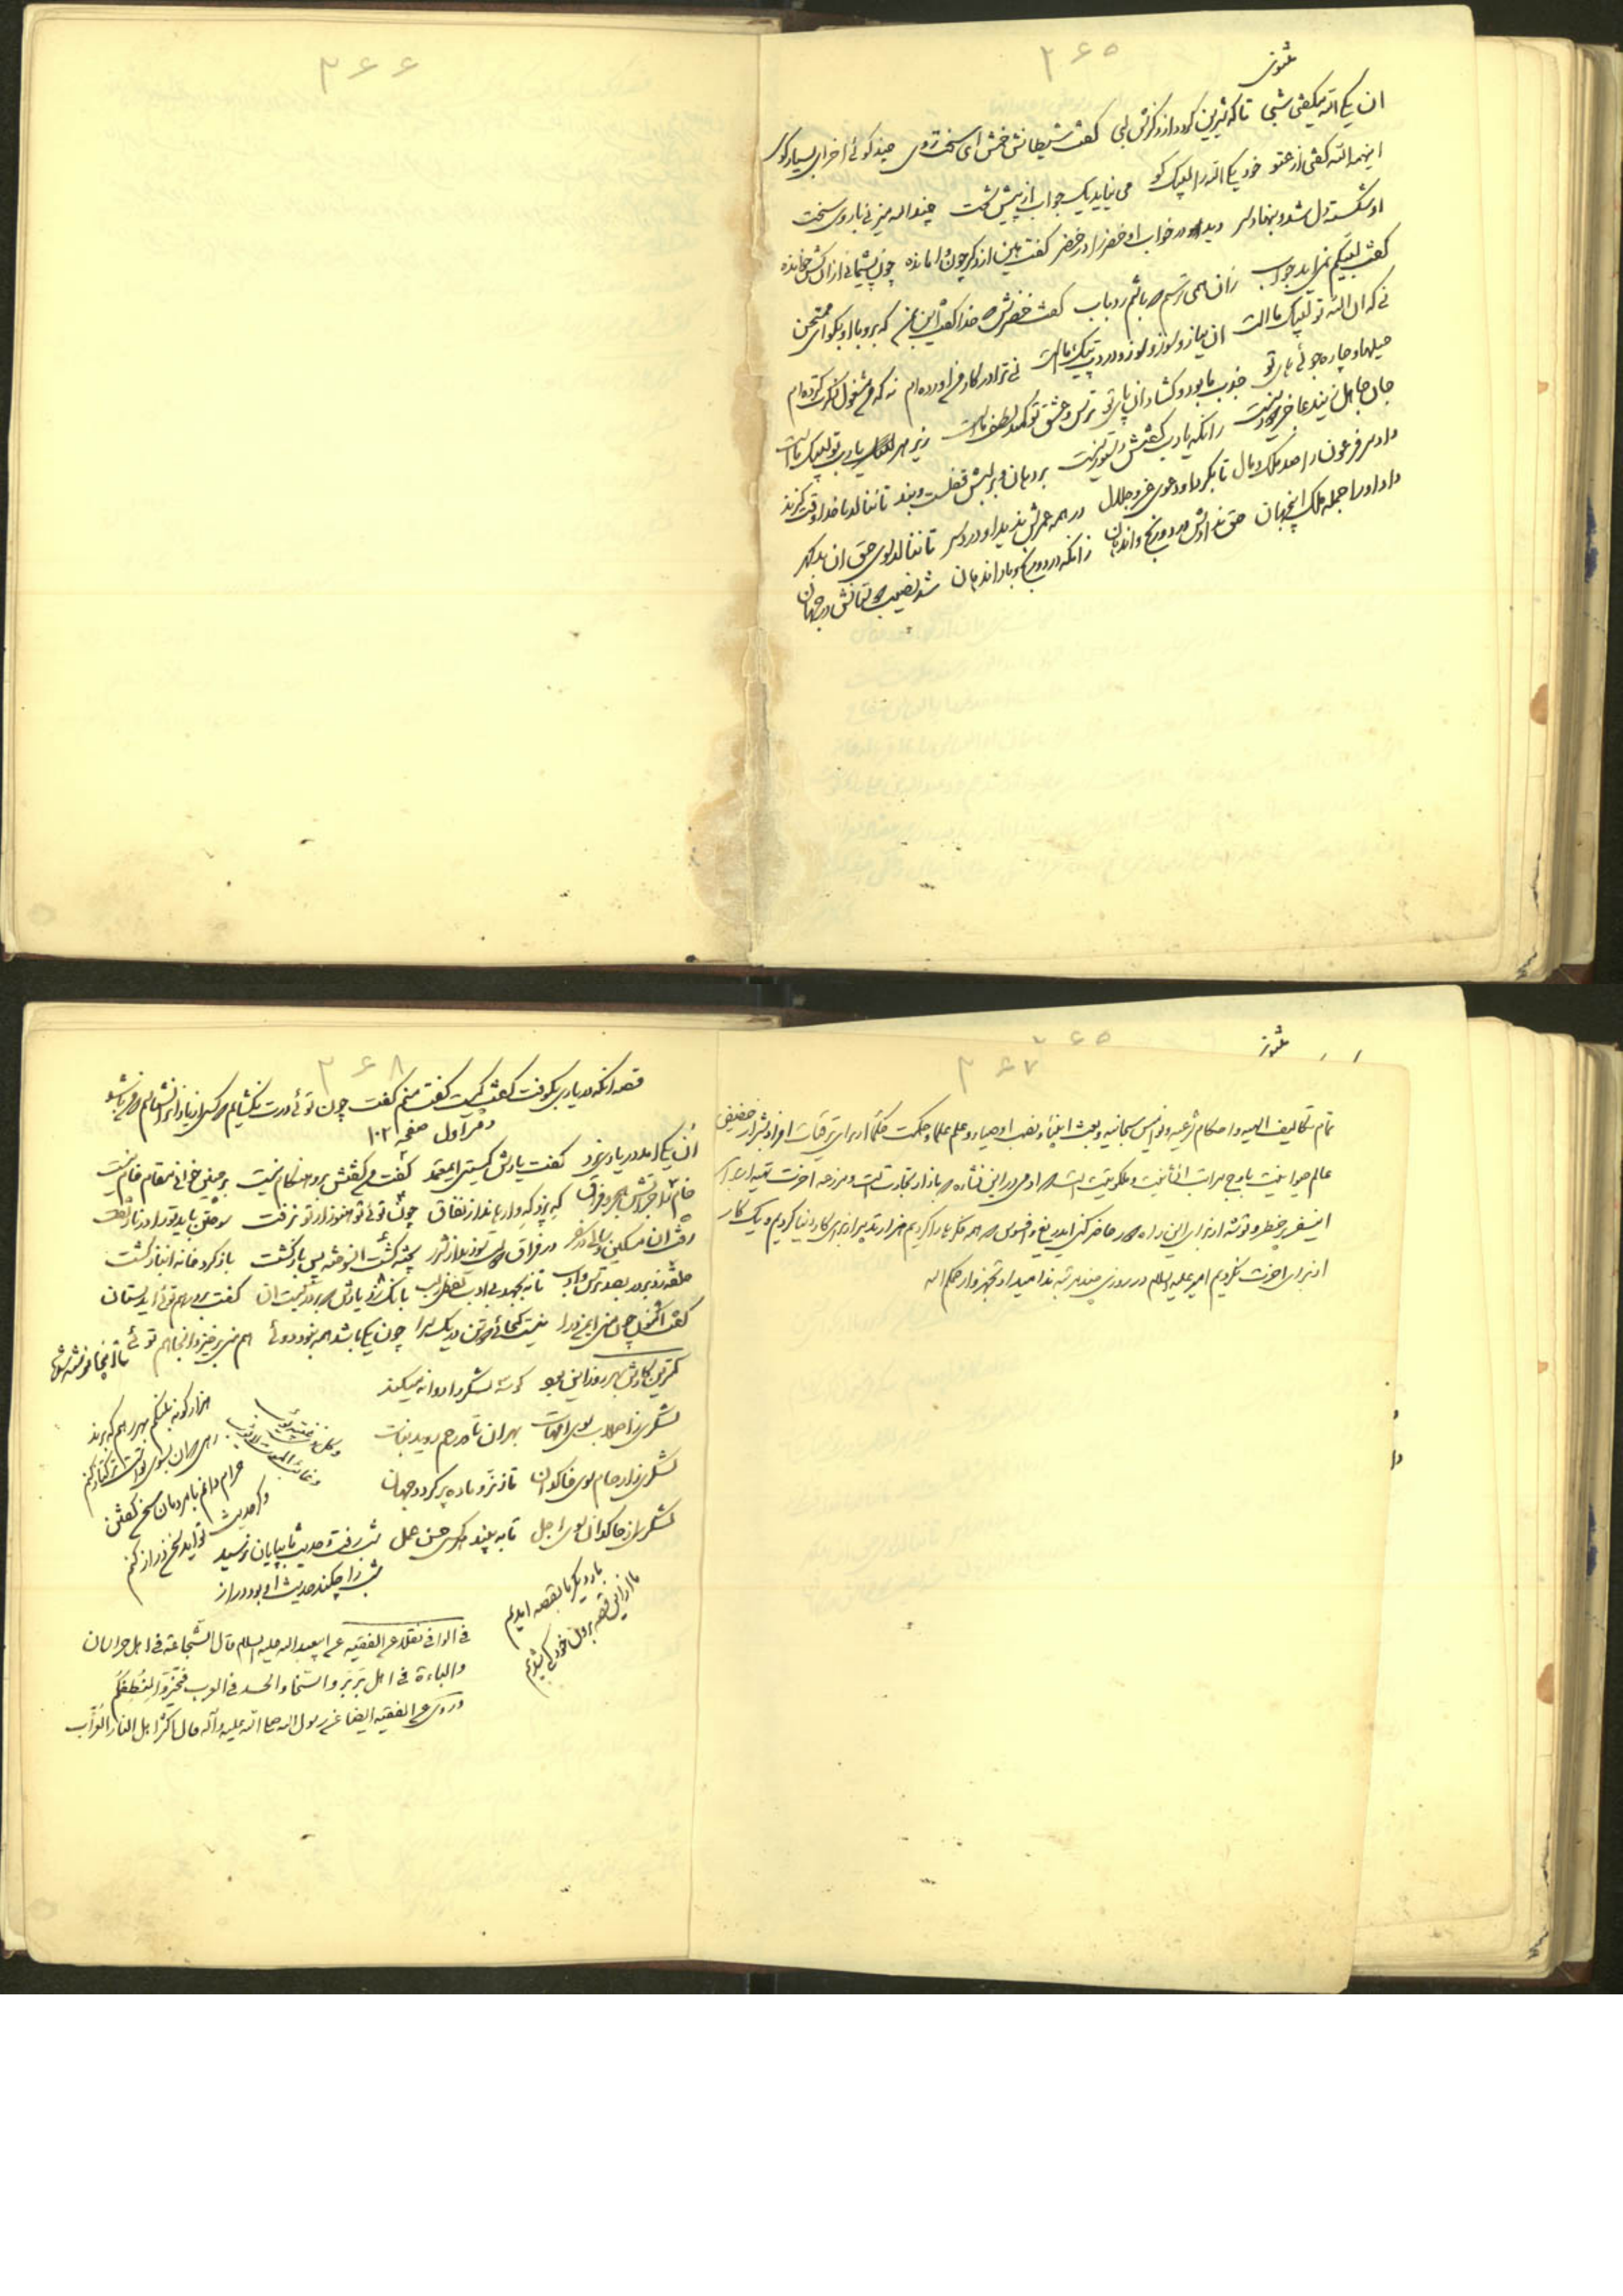 ۳۶۵
مثنوی
ان یکی الله میگفتی شبی تا که شیرین گردد از ذکرش لبی گفت شیطانش خمش ای سخت روی چند گوئی اخر ای بسیار گوی
اینهمه الله گفتی از عتو خود یکی الله را لبیک کو می نیاید یک جواب از پیش تخت چند الله میزنی با روی سخت
او شکسته دل شد و بنهاد سر دید در خواب او خضر را در خضر گفت هین از ذکر چون وامانده چون پشیمانی از ان کش خوانده
گفت لبیکم نمی اید جواب زان همی ترسم که باشم رد باب گفت خضرش که خدا گفت این بمن که برو با او بگو ای ممتحن
نی که ان الله تو لبیک ماست ان نیاز و سوز و دردت پیک ماست نی ترا در کار من اورده ام نه که من مشغول ذکرت کرده ام
حیلها و چاره جوئی های تو جذب ما بود و گشاد ان پای تو ترس و عشق تو کمند لطف ماست زیر هر یارب تو لبیک ماست
جان جاهل زین دعا جز دور نیست زانکه یارب گفتنش دستور نیست بر دهان و بر لبش قفلست و بند تا ننالد با خدا وقت گزند
داد مر فرعون را صد ملک و مال تا بکرد او دعوی عز و جلال در همه عمرش ندید او درد سر تا ننالد سوی حق ان بد گهر
داد او را جمله ملک اینجهان حق ندادش درد و رنج و اندهان زانکه درد و رنج و بار اندهان شد نصیب دوستانش در جهان
۳۶۶
۳۶۵
مثنوی
۳۶۷
تمام تکالیف الهیه و احکام شرعیه و نوامیس سبحانیه و بعث انبیاء و نصب اوصیاء و علم علما و حکمت حکما از برای ترقیات افراد بشر از حضیض
عالم حیوانیت باوج مراتب انسانیت و ملکوتیت است ادمی در این نشاءه بازار تجارتست و مزرعه اخرت
اینسفر پر خطر و توشه از برای این راه حاضر کنی ای دریغ و افسوس همه فکرها را کردیم هزار تدبیر از برای کار دنیا کردیم و یک کار
از برای اخرت نکردیم امیر علیه السلام در روزی چند مرتبه ندا میداد تجهزوا رحمکم الله
۳۶۸
قصه انکه در یاری بکوفت گفت کیست گفت منم گفت چون توئی در نگشایم
دفتر اول صفحه ۱۰۲
ان یکی امد در یاری بزد گفت یارش کیستی ای معتمد گفت من گفتش برو هنگام نیست بر چنین خوانی مقام خام نیست
خام را جز اتش هجر و فراق که پزد که وارهاند از نفاق چون توئی تو هنوز از تو نرفت سوختن باید تو را در نار تفت
رفت ان مسکین و سالی در سفر در فراق یار سوزید از شرر پخته گشت ان سوخته پس باز گشت باز گرد خانه انباز گشت
حلقه زد بر در بصد ترس و ادب تا نه بجهد بی ادب لفظی ز لب بانک زد یارش که بر در کیست ان گفت بر در هم توئی ای دلستان
گفت اکنون چون منی ای من درا نیست گنجائی دو تن در یک سرا چون یکی باشد همه نبود دوئی هم منی بر خیزد انجا هم توئی
کمترین کارش بهر روز این بود کو سه لشکر را روانه میکند
لشکری ز اصلاب سوی امهات بهر ان تا در رحم روید نبات
لشکری ز ارحام سوی خاکدان تا ز نر و ماده پر گردد جهان
لشکری از خاکدان سوی اجل تا به بیند هر کسی حسن عمل شب رفت و حدیث ما بپایان نرسید
شب را چکند حدیث او بود دراز
حرام دانم با مردمان سخن گفتن
و گر حدیث تو اید سخن دراز کنم
بار دیگر ما بقصه امدیم
ما از این قصه برون خود کی شدیم
فی الوافی نقلا عن الفقیه عن ابیعبد الله علیه السلام قال الشجاعة فی اهل خراسان
والباءة فی اهل بربر والسخا والحسد فی العرب فتخیروا لنطفکم
و روی عن الفقیه ایضا عن رسول الله صلی الله علیه و آله قال اکثر اهل النار العزاب